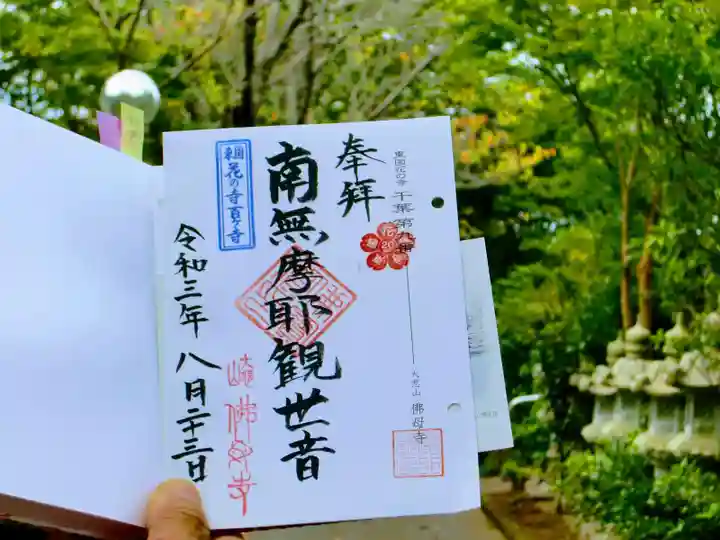 東国花の寺 千葉 第九番
大悲山 佛母寺
奉拝
南無摩耶観世音
東国花の寺百ヶ寺
佛母寺
令和三年 八月二十三日